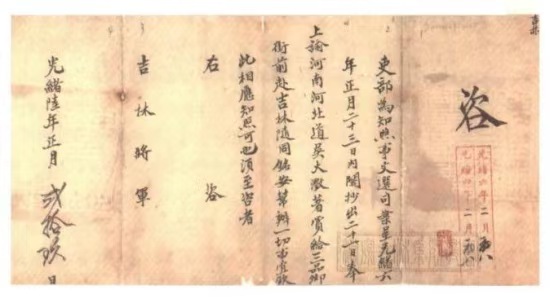 咨
吏部為知照事文選司案呈光緒六
年正月二十三日內閣抄出二十一日奉
上諭河南河北道吳大澂著賞給三品卿
銜前赴吉林隨同銘安幫辦一切事宜欽
此相應知照可也須至咨者
右咨
吉林將軍
光緒陸年正月貳拾玖日
光緒六年二月
光緒六年二月